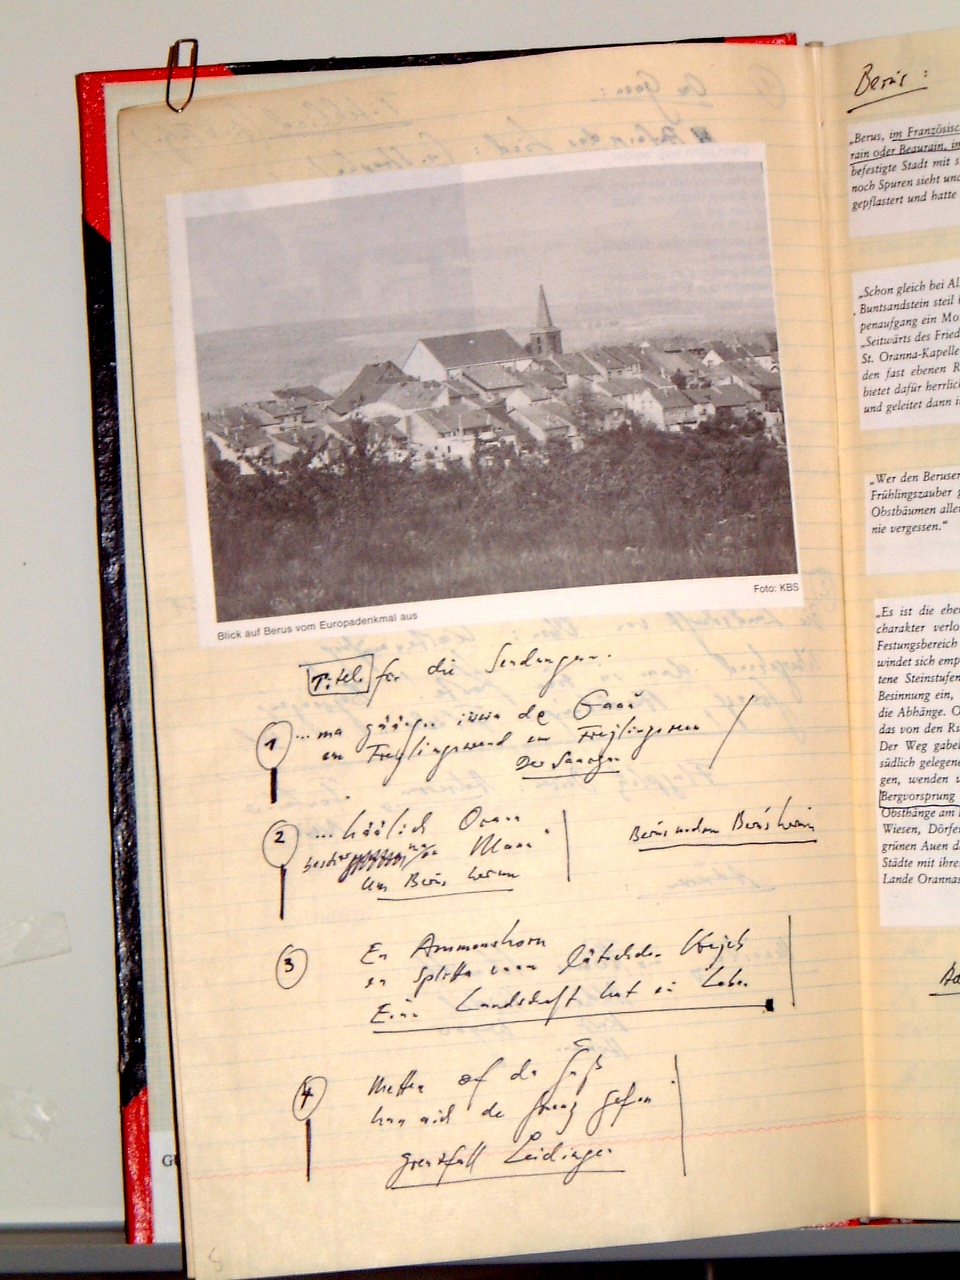 Blick auf Berus vom Europadenkmal aus
Foto: KBS
Titel für die Sendungen.
1
...ma gääng iwwa de Gaau
em Freijlingswend em Freijlingsreen
Der Saargau
2
... häälich Orann
Maan
Um Berus herum
Berus und um Berus herum
3
En Ammonshorn
en Splitta vum lätschden Kriejch
Eine Landschaft hat ein Leben
4
Metten of da Gaß
hun mich de Grenz gefon
Grenzfall Leidingen
5
Berus:
„Berus, im Französisc
rain oder Beaurain, in
befestigte Stadt mit s
noch Spuren sieht und
gepflastert und hatte
„Schon gleich bei Al
Buntsandstein steil
penaufgang ein Mo
„Seitwärts des Fried
St. Oranna-Kapelle
den fast ebenen R
bietet dafür herrlic
und geleitet dann i
„Wer den Beruser
Frühlingszauber g
Obstbäumen alle
nie vergessen.“
„Es ist die ehe
charakter verlo
Festungsbereich
windet sich emp
tene Steinstufen
Besinnung ein,
die Abhänge. O
das von den Ru
Der Weg gabel
südlich gelegene
gen, wenden u
Bergvorsprung
Obsthänge am
Wiesen, Dörfer
grünen Auen d
Städte mit ihre
Lande Orannas